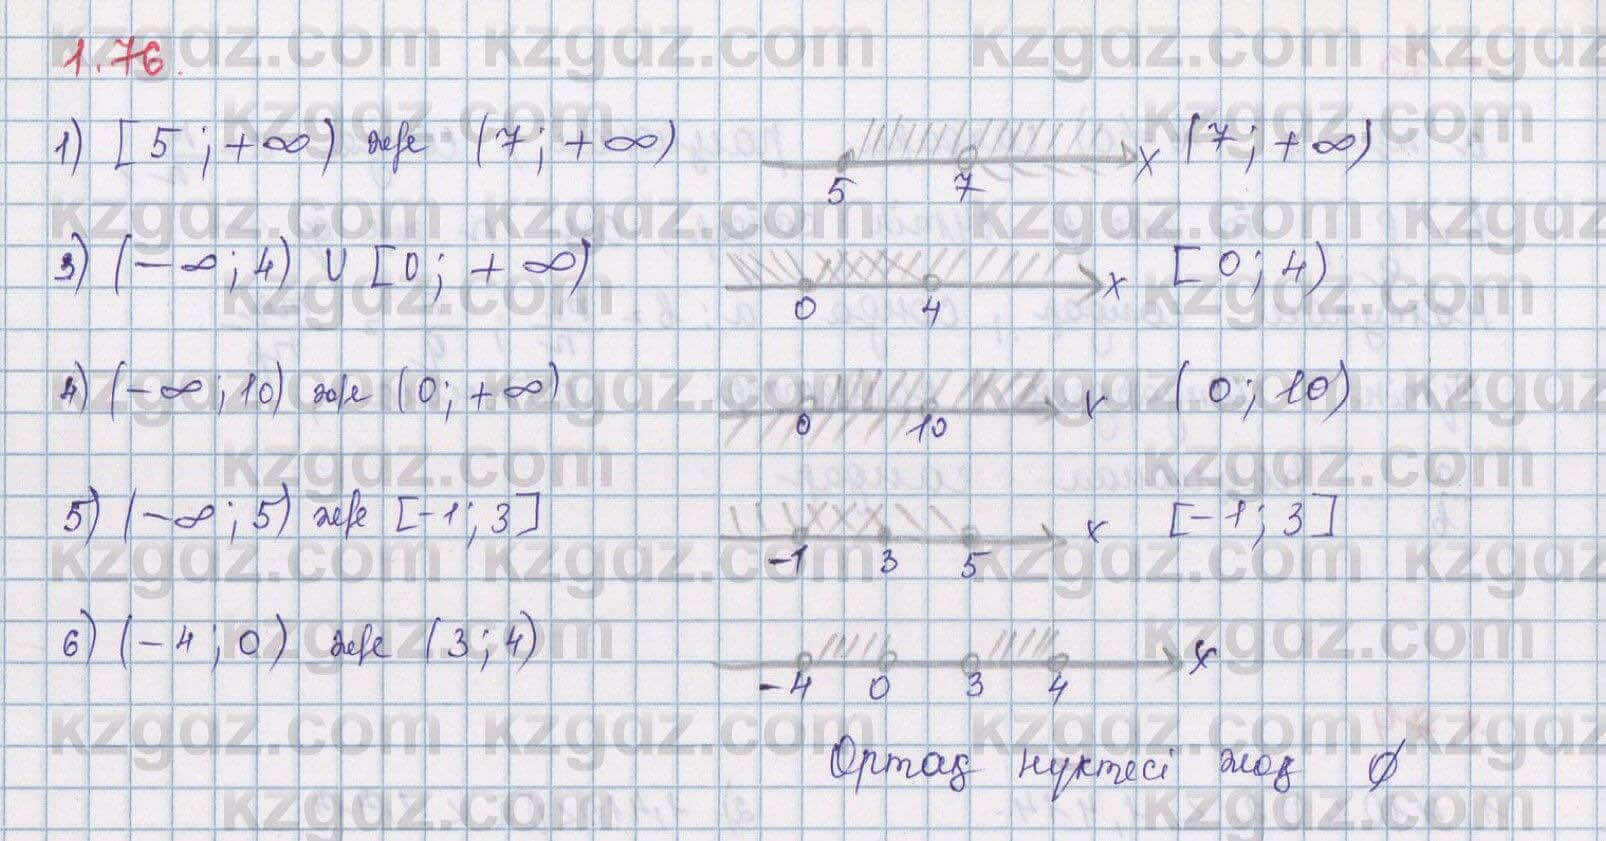 1.76.
1) [5; +∞) және (7; +∞) 5 7 x (7; +∞)
3) (-∞; 4) U [0; +∞) 0 4 x [0; 4)
4) (-∞; 10) және (0; +∞) 0 10 x (0; 10)
5) (-∞; 5) және [-1; 3] -1 3 5 x [-1; 3]
6) (-4; 0) және (3; 4) -4 0 3 4 x
Ортақ нүктесі жоқ ∅
kzgdz.com